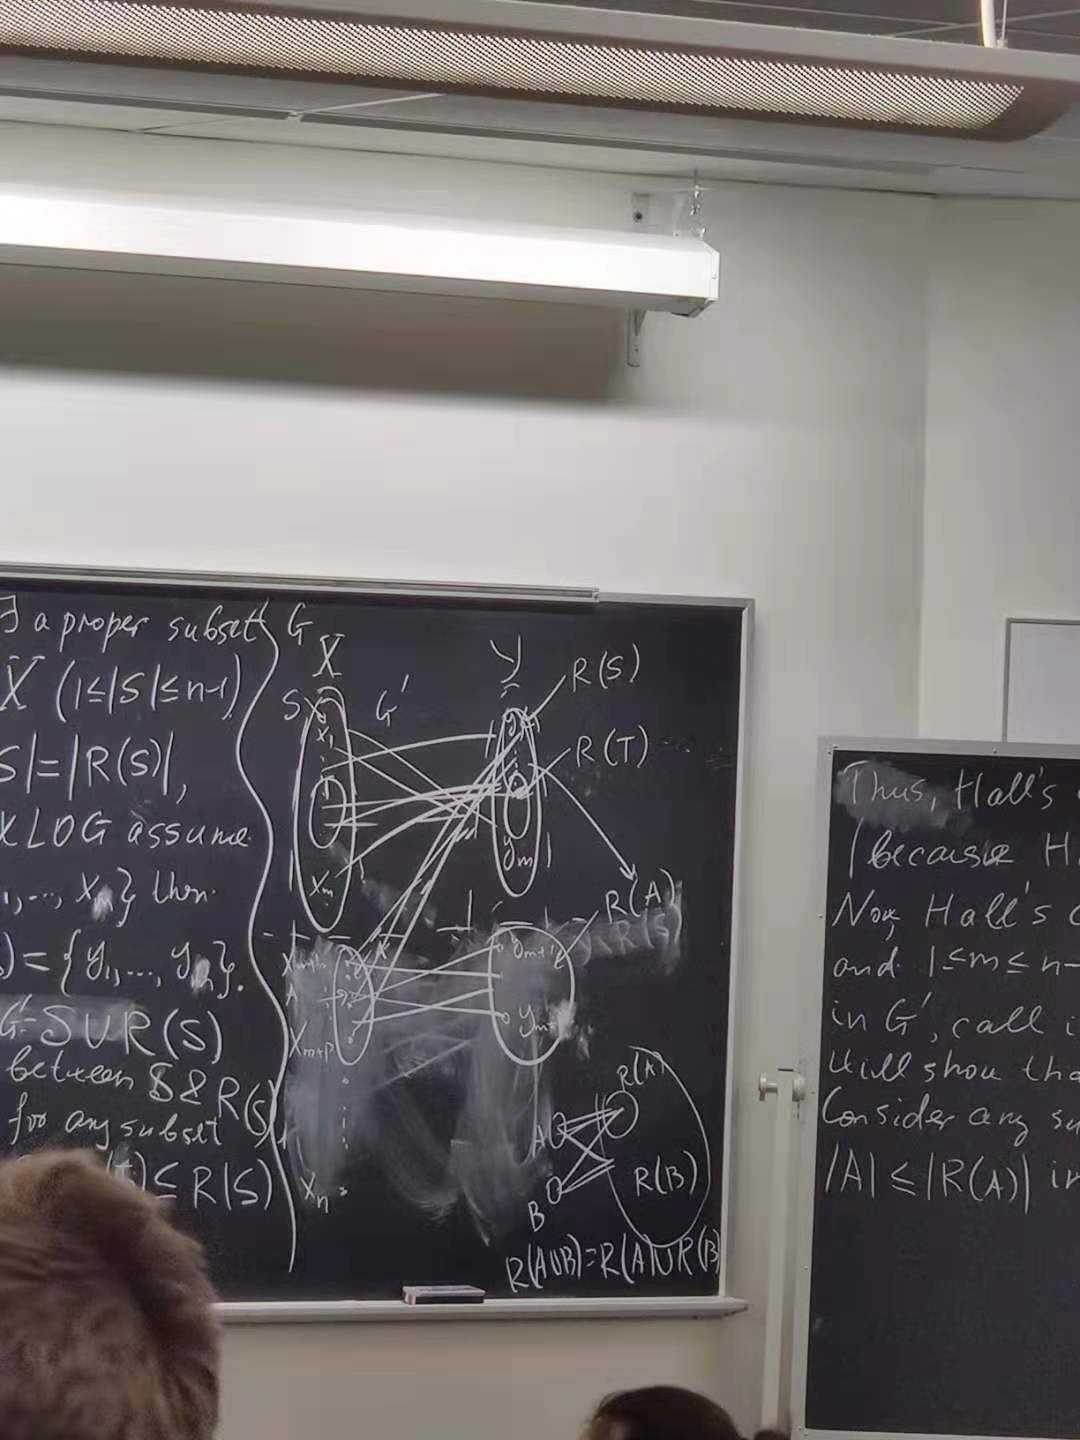 ∃ a proper subset
X (1≤|S|≤n-1)
S|=|R(S)|,
LOG assume
1,..., Xm} then
)={y1,..., ym}.
G' = S∪R(S)
between S & R(S)
for any subset
⊆ R(S)
G
X
Y
R(S)
S
G'
x1
R(T)
xm
ym
R(A)
xm+1
ym+1
A
xm+p
R(A)
A
R(B)
xn
B
R(A∪B)=R(A)∪R(B)
Thus, Hall's
(because H
Now, Hall's c
and 1≤m≤n-
in G', call i
Will show tha
Consider any su
|A| ≤ |R(A)| in